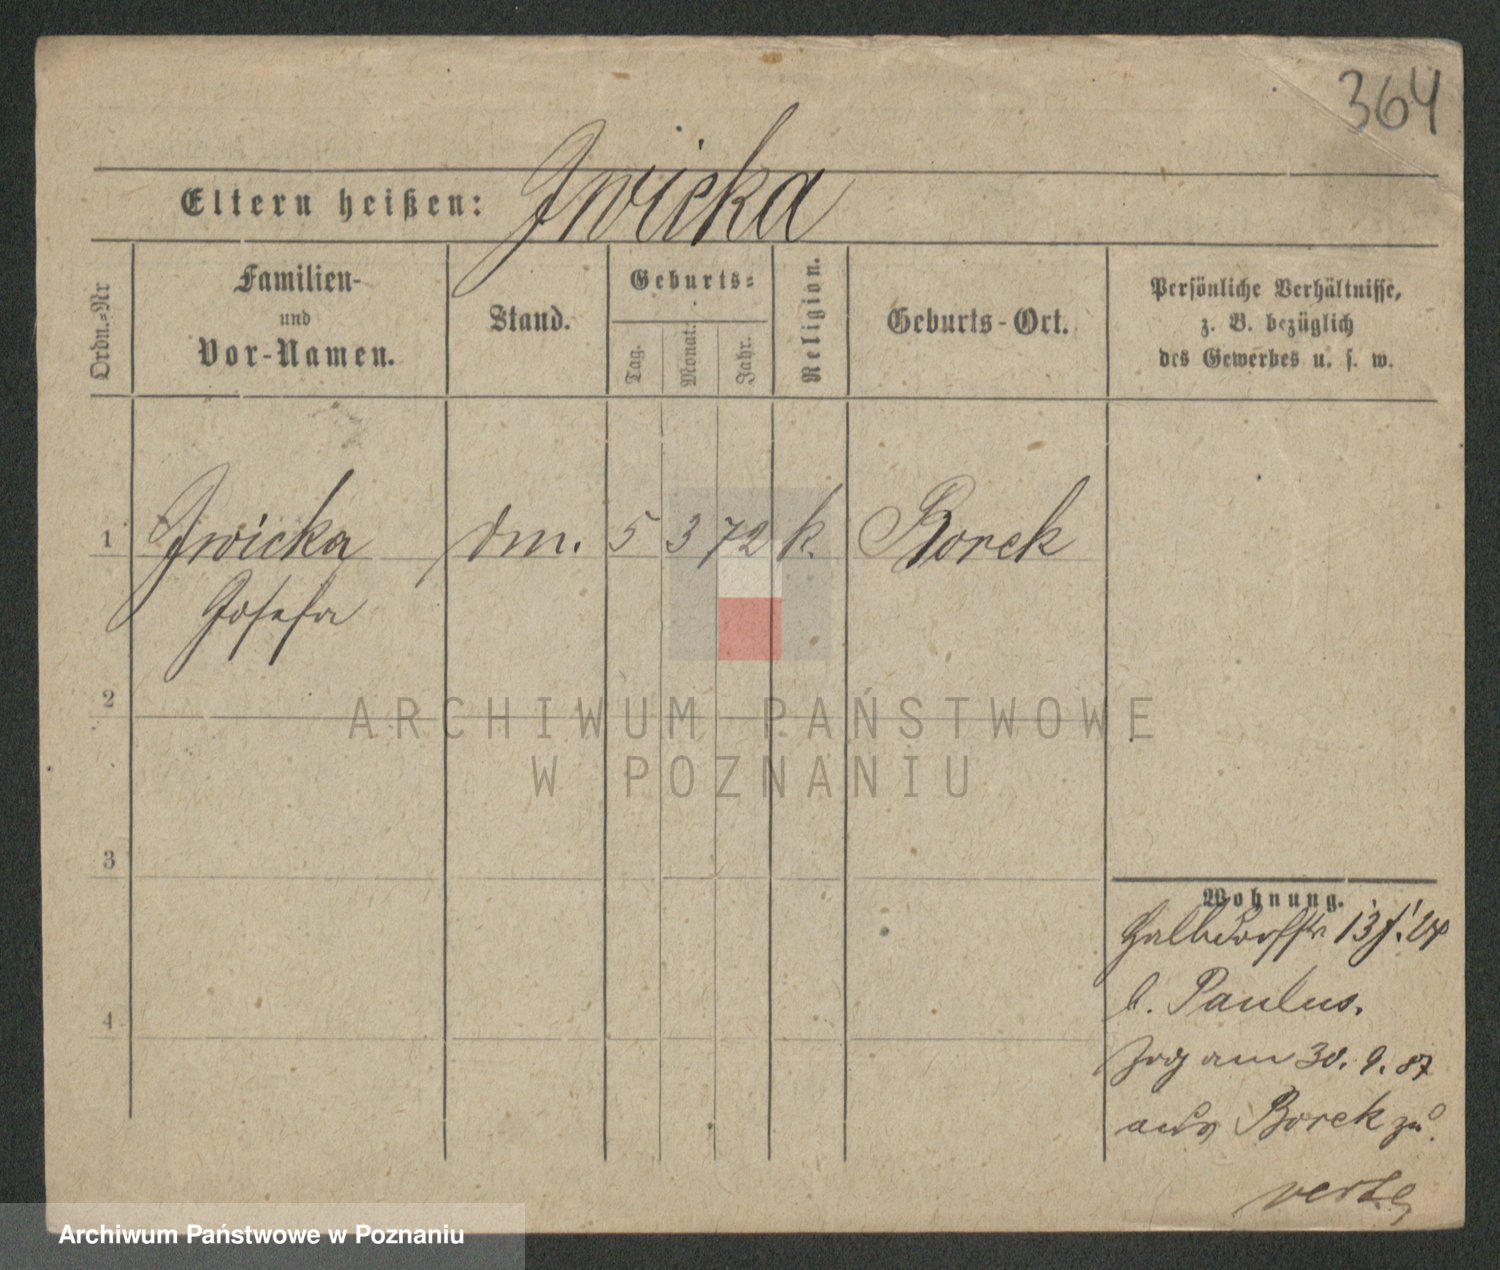 364
Eltern heißen: Iwicka
Ordn.-Nr
Familien-
und
Vor-Namen.
Stand.
Geburts-
Tag.
Monat.
Jahr.
Religion.
Geburts-Ort.
Persönliche Verhältnisse,
z. B. bezüglich
des Gewerbes u. s. w.
1 Iwicka dm. 5 3 72 k. Borek
Josefa
2
ARCHIWUM PAŃSTWOWE
W POZNANIU
3
Wohnung.
Halbdorfstr 13
b. Paulus.
4
Zog am 30. 9. 87
aus Borek zu.
Archiwum Państwowe w Poznaniu